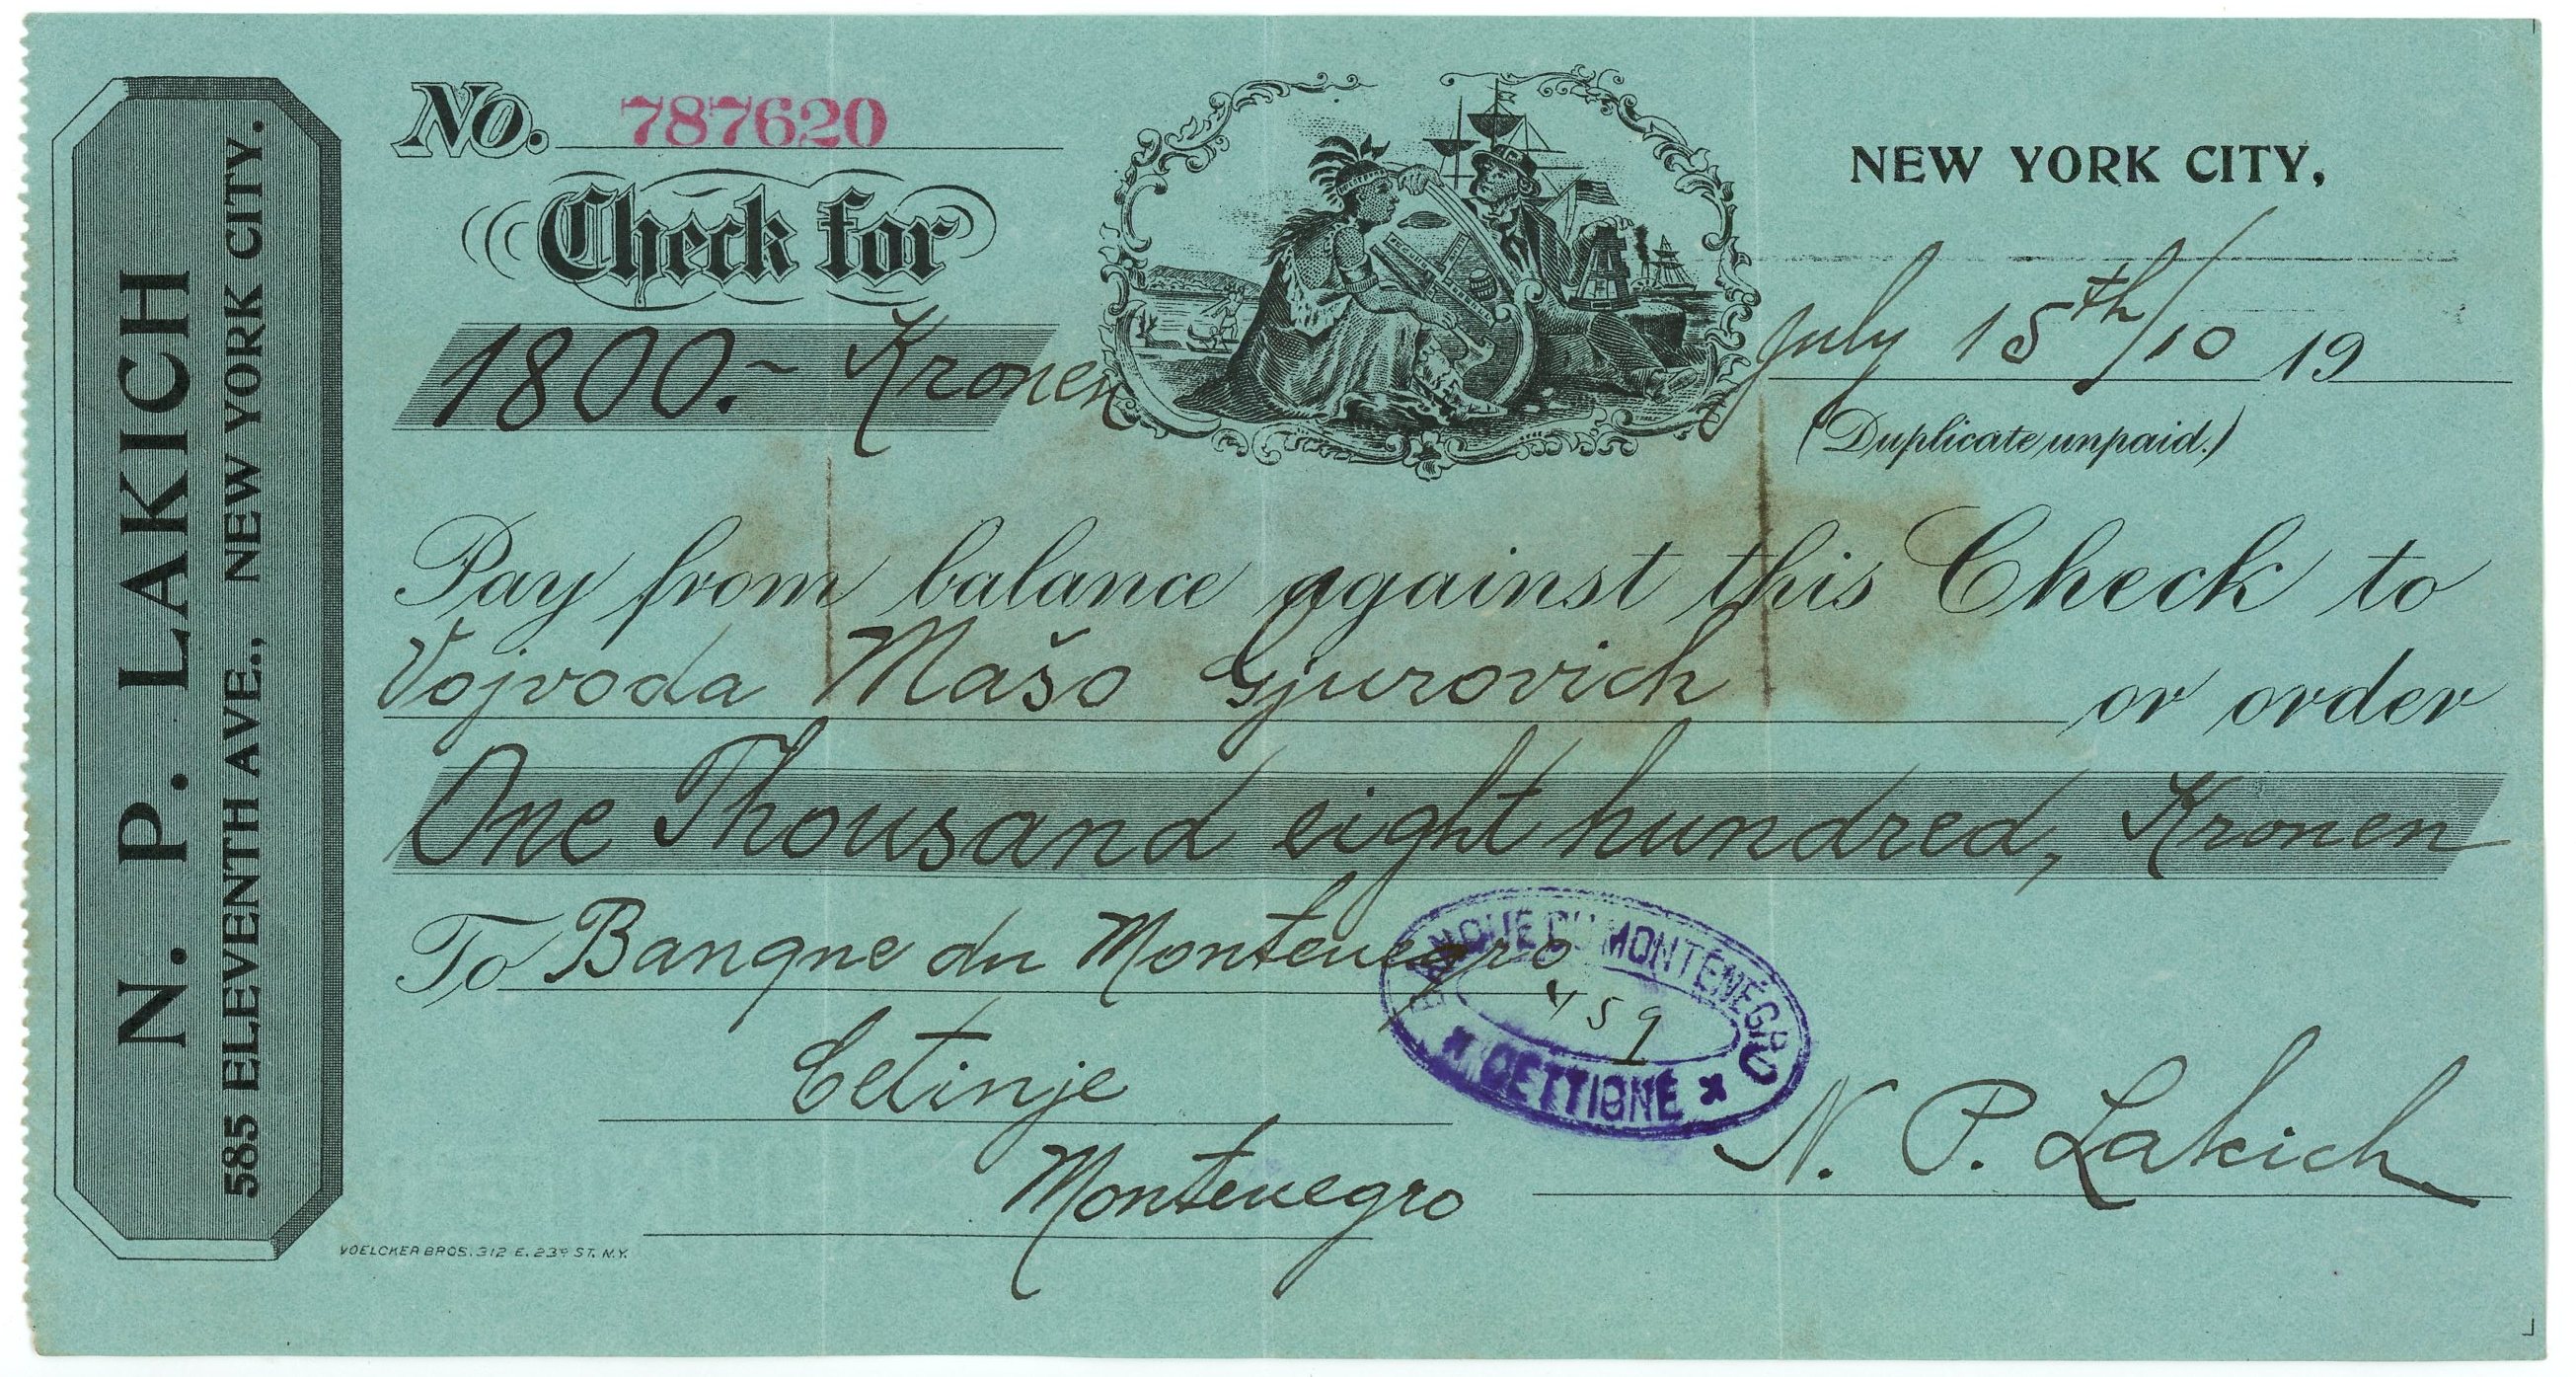 N. P. LAKICH
585 ELEVENTH AVE., NEW YORK CITY.
No. 787620
Check for
1800.~ Kronen
NEW YORK CITY,
July 15th/10 19
(Duplicate unpaid.)
Pay from balance against this Check to
Vojvoda Mašo Gjurovich or order
One Thousand eight hundred, Kronen
To Banque du Montenegro
Cetinje
Montenegro
BANQUE DU MONTÉNÉGRO
459
* CETTIGNÉ *
N. P. Lakich
VOELCKER BROS. 312 E. 23D ST. N.Y.